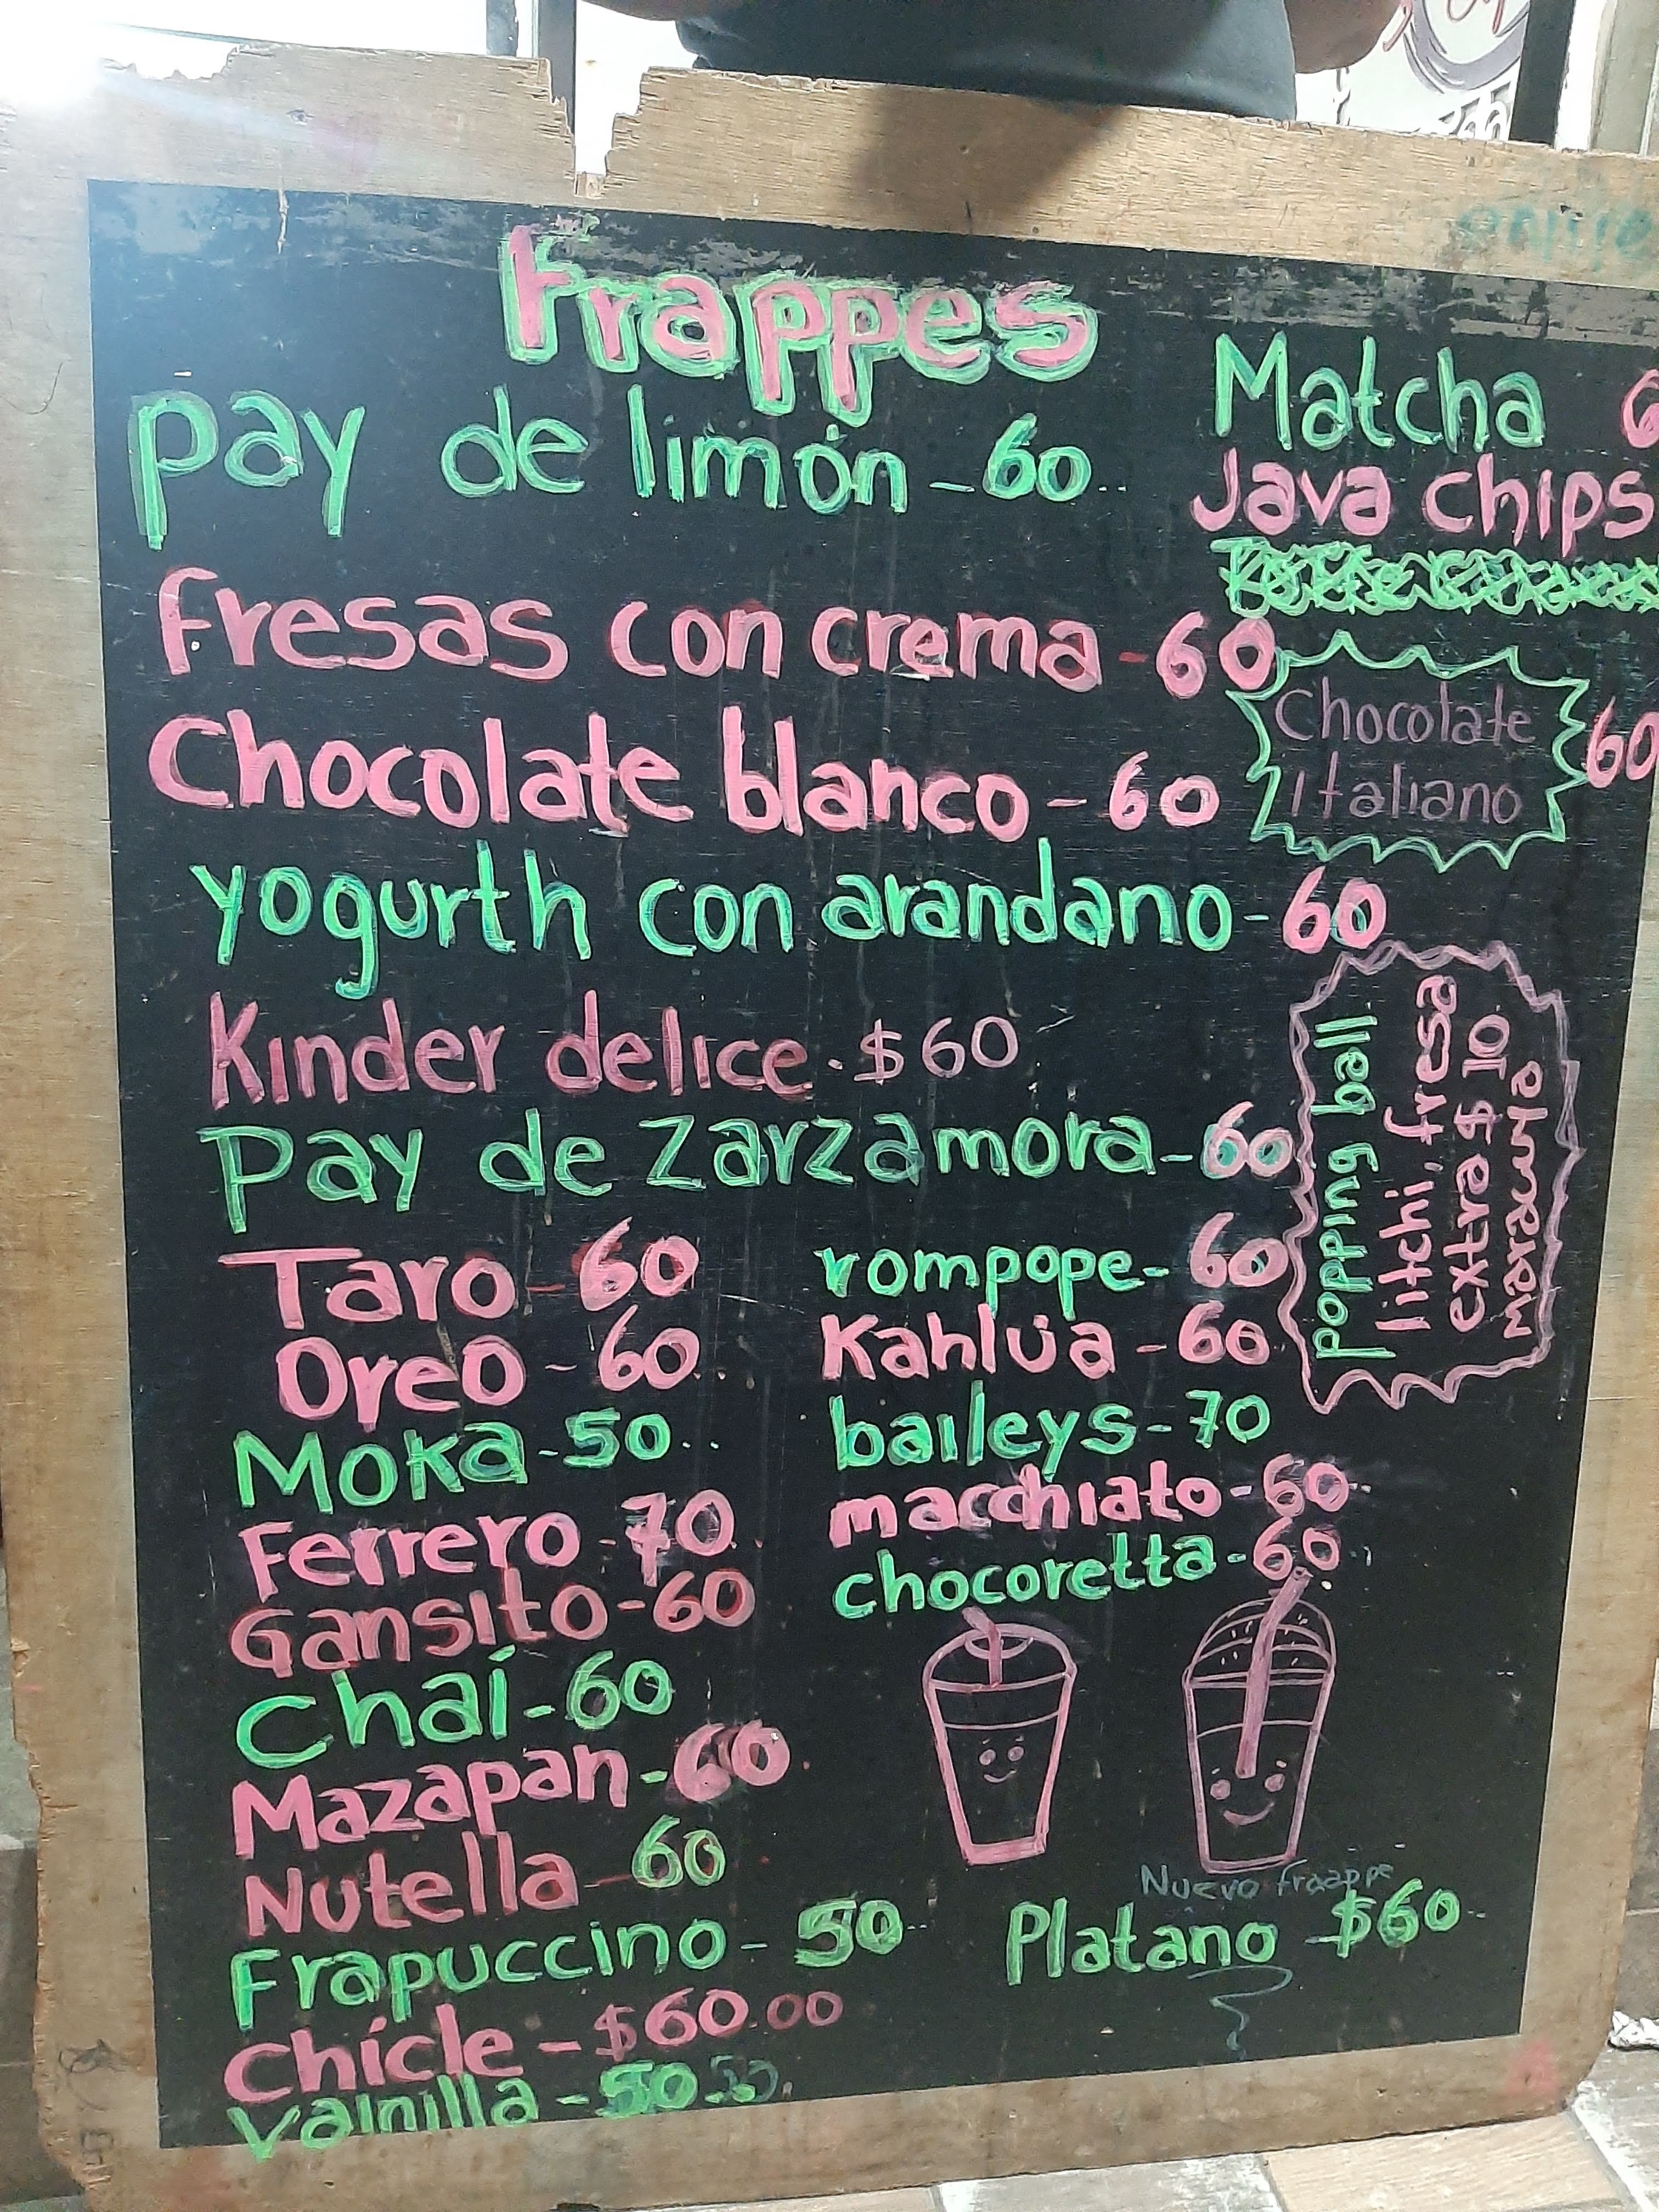 Frappes
Pay de limón - 60
Fresas con crema - 60
Chocolate blanco - 60
yogurth con arandano - 60
Kinder delice - $60
Pay de Zarzamora - 60
Taro - 60
Oreo - 60
Moka - 50
Ferrero - 70
Gansito - 60
Chai - 60
Mazapan - 60
Nutella - 60
Frapuccino - 50
Chicle - $60.00
Vainilla - 50
rompope - 60
Kahlúa - 60
baileys - 70
macchiato - 60
chocoretta - 60
Nuevo fraappe
Platano $60
Matcha
Java chips
Chocolate
Italiano
60
popping ball
litchi, fresa
extra $10
maracuya